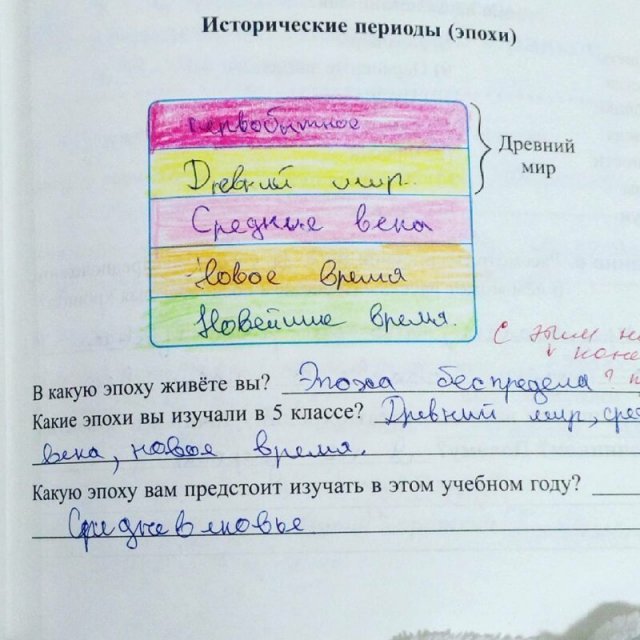 Исторические периоды (эпохи)
первобытное
Древний мир.
Древний
мир
Средние века
Новое время
Новейшие время.
С этим
В какую эпоху живёте вы? Эпоха беспредела
Какие эпохи вы изучали в 5 классе? Древний мир, сре
века, новое время.
Какую эпоху вам предстоит изучать в этом учебном году?
Средневековье